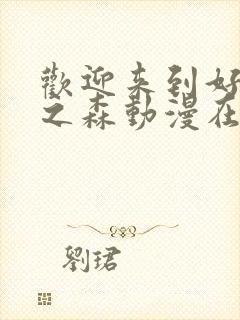 歡迎来到好
之森動漫在
劉珺